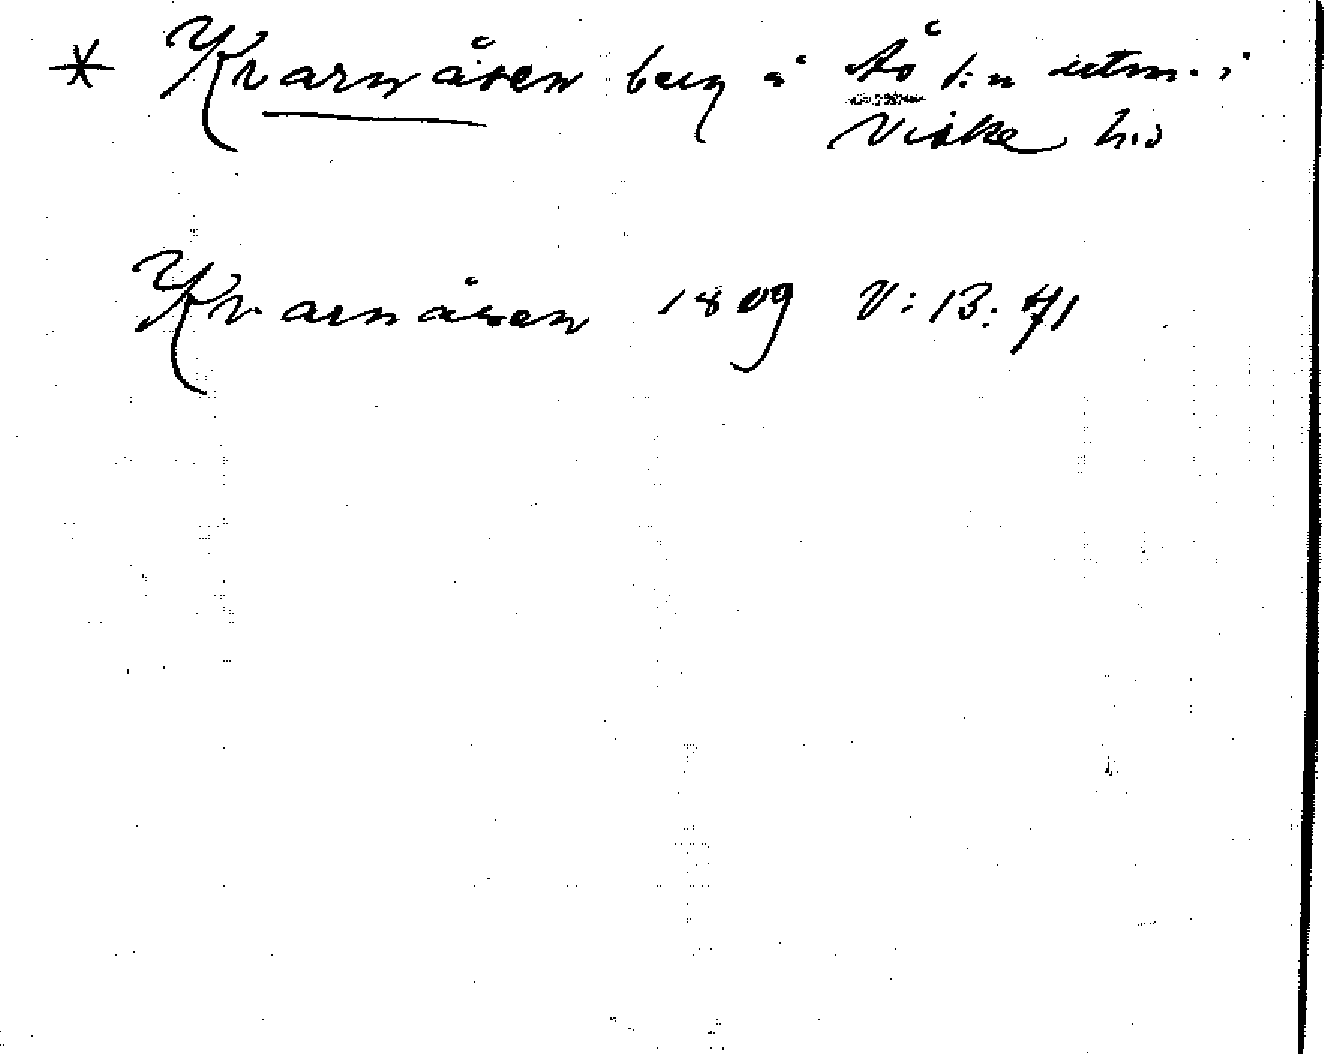 * Kvarnåsen berg å Ås b:n utm. i
Viske h:d
Kvarnåsen 1809 V: 13: 71